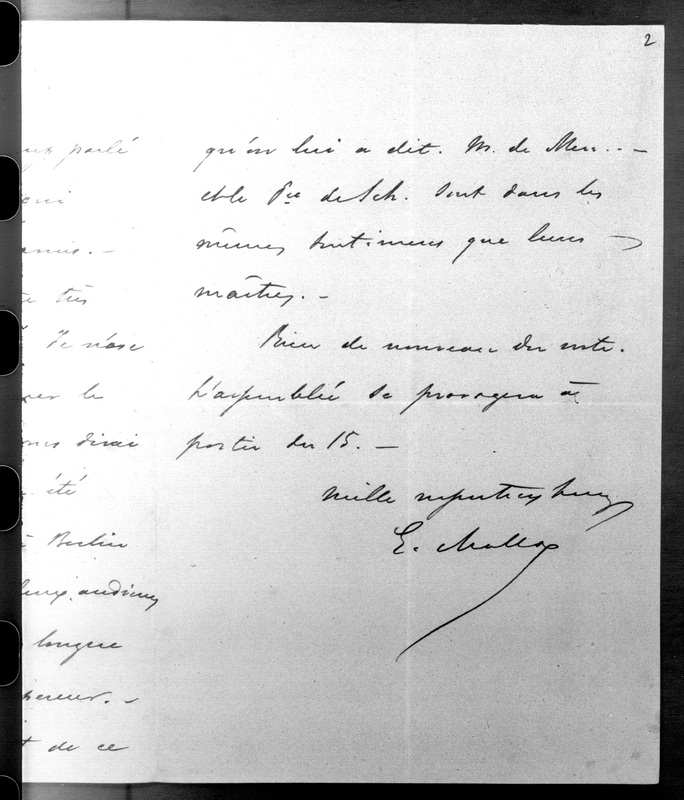 2
parlé
qui
amis. -
très
Je n'ose
le
dirai
été
à Berlin
audiences
longue
-
de ce
qu'on lui a dit. M. de Men.. -
et le Pce de Sch. sont dans les
mêmes sentimens que leurs
maîtres. -
Rien de nouveau du reste.
L'assemblée se prorogera à
partir du 15. -
mille respectueux
E.